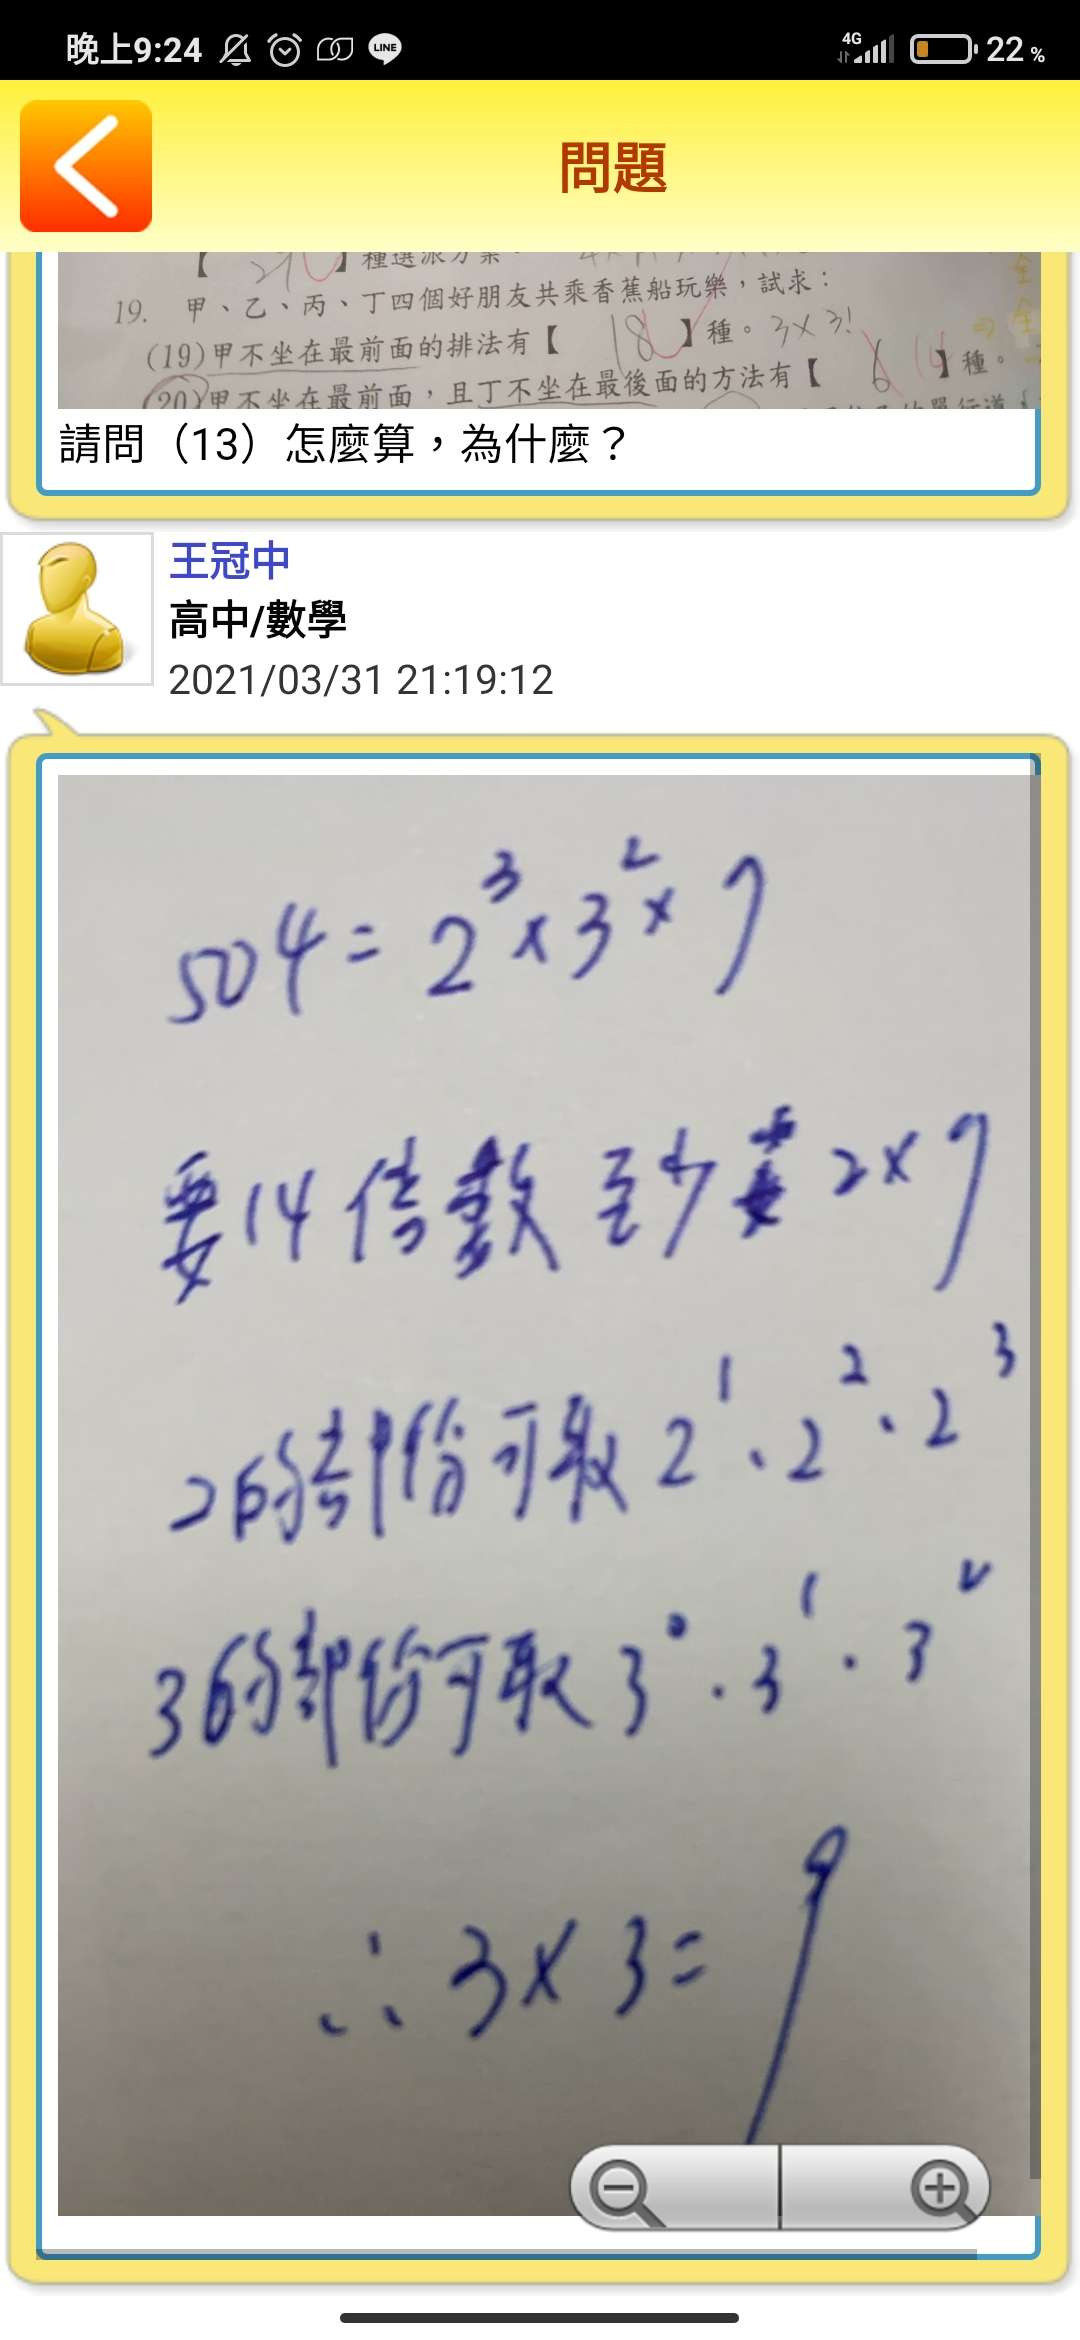 晚上9:24 LINE 4G 22 %
問題
【 210 】種選派方案。
19. 甲、乙、丙、丁四個好朋友共乘香蕉船玩樂,試求:
(19)甲不坐在最前面的排法有【 18 】種。3×3!
(20)甲不坐在最前面,且丁不坐在最後面的方法有【 6 14 】種。
請問(13)怎麼算,為什麼?
王冠中
高中/數學
2021/03/31 21:19:12
504=2³×3²×7
要14倍數至少要2×7
2的部份可取2¹、2²、2³
3的部份可取3⁰.3¹.3²
∴3×3=9